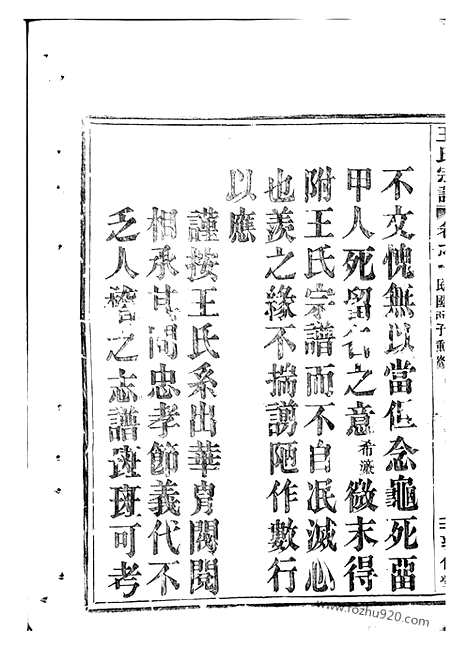 王氏宗譜 卷之一 民國丙子重修
不文愧無以當但念龜死畱
甲人死留名之意希濂微末得
附王氏宗譜而不自泯滅心
也羨之緣不揣謭陋作數行
以應
謹按王氏系出華胄閥閱
相承其間忠孝節義代不
乏人稽之志譜班班可考
www.fozhu920.com